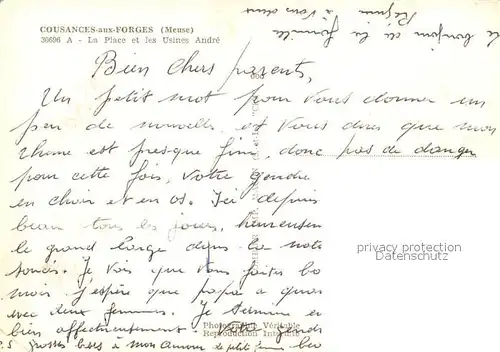 COUSANCES-aux-FORGES (Meuse)
36696 A - La Place et les Usines André
Le bonjour de la famille
à vous deux
Bien chers parents,
Un petit mot pour vous donner un
peu de nouvelle, et vous dire que mon
rhume est presque fini, donc pas de danger
pour cette fois, votre gendre
en chair et en os. Ici depuis
beau tous les jours,
le grand large dans la note
Je vois que vous faites
mois, j'espère que papa a
avec deux femmes. Je termine
bien affectueusement votre gendre
P.S Grosses bises à mon amour de petite femme
privacy protection
Datenschutz
Photographie Véritable
Reproduction Interdite